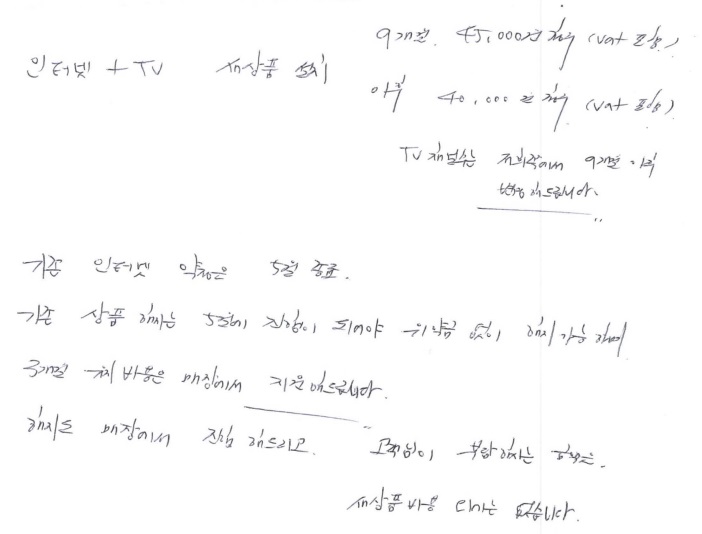 인터넷 + TV 새상품 설치
9개월. 45,000원 청구 (vat 포함)
이후 40,000원 청구 (vat 포함)
TV 채널수는 저희쪽에서 9개월 이후
변경해드립니다.
기존 인터넷 약정은 5월 종료.
기존 상품 해지는 5월에 진행이 되어야 위약금 없이 해지 가능하며
3개월 유지비용은 매장에서 지원해드립니다.
해지도 매장에서 진행해드리고. 고객님이 부담하시는 금액은.
새상품비용 외에는 없습니다.